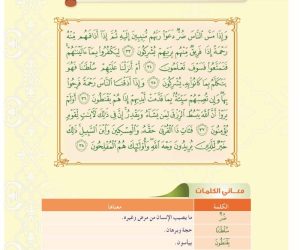 وَإِذَا مَسَّ النَّاسَ ضُرٌّ دَعَوْا رَبَّهُم مُّنِيبِينَ إِلَيْهِ ثُمَّ إِذَا أَذَاقَهُم مِّنْهُ
رَحْمَةً إِذَا فَرِيقٌ مِّنْهُم بِرَبِّهِمْ يُشْرِكُونَ ٣٣ لِيَكْفُرُوا بِمَا آتَيْنَاهُمْ
فَتَمَتَّعُوا فَسَوْفَ تَعْلَمُونَ ٣٤ أَمْ أَنزَلْنَا عَلَيْهِمْ سُلْطَانًا فَهُوَ
يَتَكَلَّمُ بِمَا كَانُوا بِهِ يُشْرِكُونَ ٣٥ وَإِذَا أَذَقْنَا النَّاسَ رَحْمَةً فَرِحُوا
بِهَا وَإِن تُصِبْهُمْ سَيِّئَةٌ بِمَا قَدَّمَتْ أَيْدِيهِمْ إِذَا هُمْ يَقْنَطُونَ ٣٦ أَوَلَمْ
يَرَوْا أَنَّ اللَّهَ يَبْسُطُ الرِّزْقَ لِمَن يَشَاءُ وَيَقْدِرُ إِنَّ فِي ذَٰلِكَ لَآيَاتٍ لِّقَوْمٍ
يُؤْمِنُونَ ٣٧ فَآتِ ذَا الْقُرْبَىٰ حَقَّهُ وَالْمِسْكِينَ وَابْنَ السَّبِيلِ ذَٰلِكَ
خَيْرٌ لِّلَّذِينَ يُرِيدُونَ وَجْهَ اللَّهِ وَأُولَٰئِكَ هُمُ الْمُفْلِحُونَ ٣٨
معاني الكلمات
الكلمة معناها
ضُرٌّ ما يصيب الإنسان من مرض وغيره.
سُلْطَانًا حجة وبرهان.
يَقْنَطُونَ ييأسون.